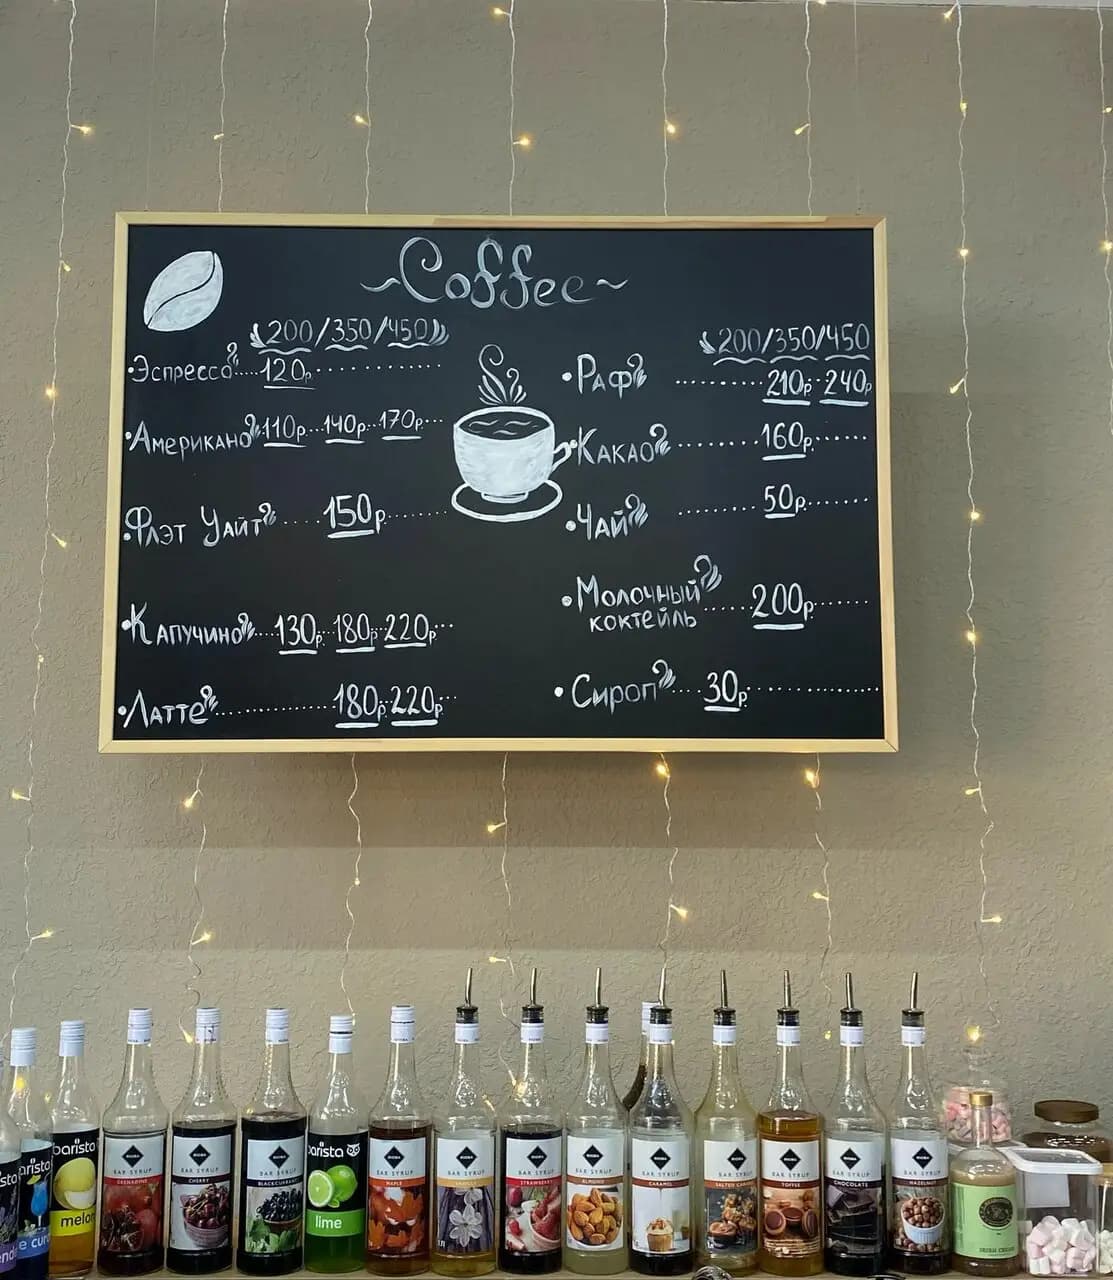 ~Coffee~
200/350/450
•Эспрессо....120р...........
•Американо 110р...140р...170р...
•Флэт Уайт....150р........
•Капучино...130р. 180р. 220р...
•Латте..............180р. 220р...
200/350/450
•Раф ........... 210р. 240р.
•Какао .......... 160р......
•Чай .......... 50р.......
•Молочный
коктейль ..... 200р......
•Сироп.... 30р............
barista
melon
BAR SYRUP
GRENADINE
BAR SYRUP
CHERRY
BAR SYRUP
BLACKCURRANT
barista
lime
BAR SYRUP
MAPLE
BAR SYRUP
VANILLA
BAR SYRUP
STRAWBERRY
BAR SYRUP
ALMOND
BAR SYRUP
CARAMEL
BAR SYRUP
SALTED CARAMEL
BAR SYRUP
TOFFEE
BAR SYRUP
CHOCOLATE
BAR SYRUP
HAZELNUT
IRISH CREAM